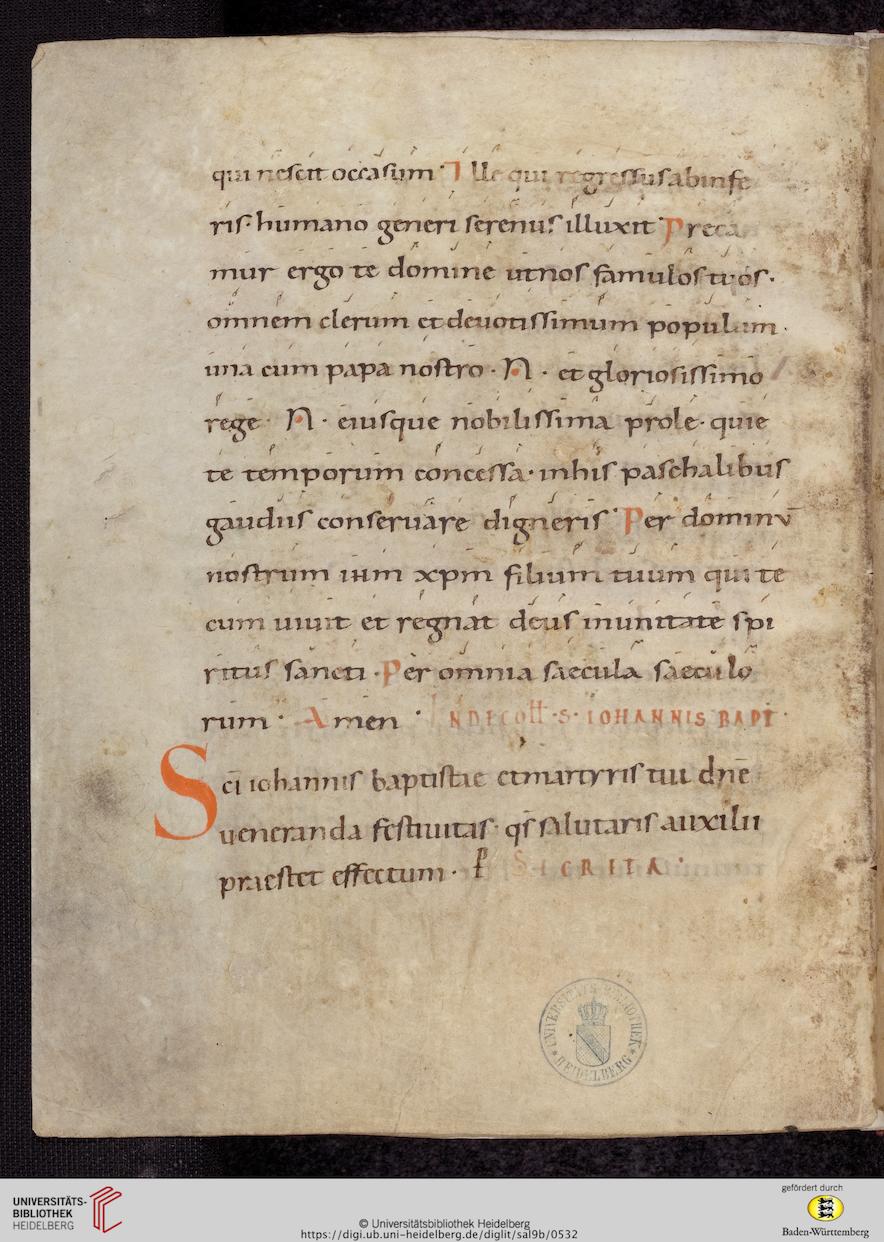 qui nescit occasum · Ille qui regressus ab infe
ris · humano generi serenus illuxit · Preca
mur ergo te domine ut nos famulos tuos ·
omnem clerum et deuotissimum populum ·
una cum papa nostro · N · et gloriosissimo
rege · N · eiusque nobilissima prole · quie
te temporum concessa · in his paschalibus
gaudiis conseruare digneris · Per dominū
nostrum ihm xpm filium tuum qui te
cum uiuit et regnat deus in unitate spi
ritus sancti · Per omnia saecula saeculo
rum · Amen · IN DIE COTT · S · IOHANNIS BAPT ·
Scī iohannis baptistae et martyris tui dnē
ueneranda festiuitas · qs̄ salutaris auxilii
praestet effectum · P SECRETA ·
UNIVERSITÄTS BIBLIOTHEK
* HEIDELBERG *
UNIVERSITÄTS-
BIBLIOTHEK
HEIDELBERG
© Universitätsbibliothek Heidelberg
https://digi.ub.uni-heidelberg.de/diglit/sal9b/0532
gefördert durch
Baden-Württemberg